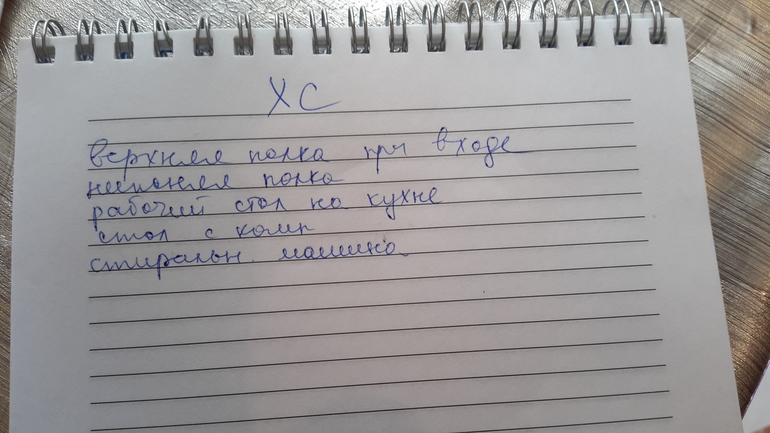 ХС
верхняя полка при входе
нижняя полка
рабочий стол на кухне
стол с комп
стиральн. машина